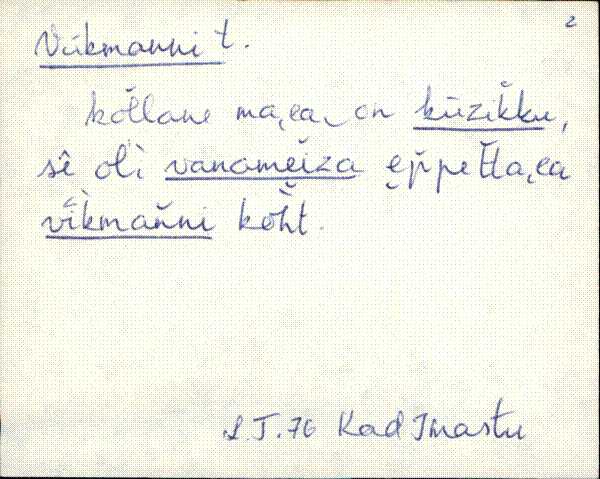 2
Viikmanni t.
kõllane ma͕i̯a on kūzikku,
sê oĺi vanamei̯za ep̆petta͕i̯a
vīkmańni kŏh̆t.
L.T. 76 Kad Imastu